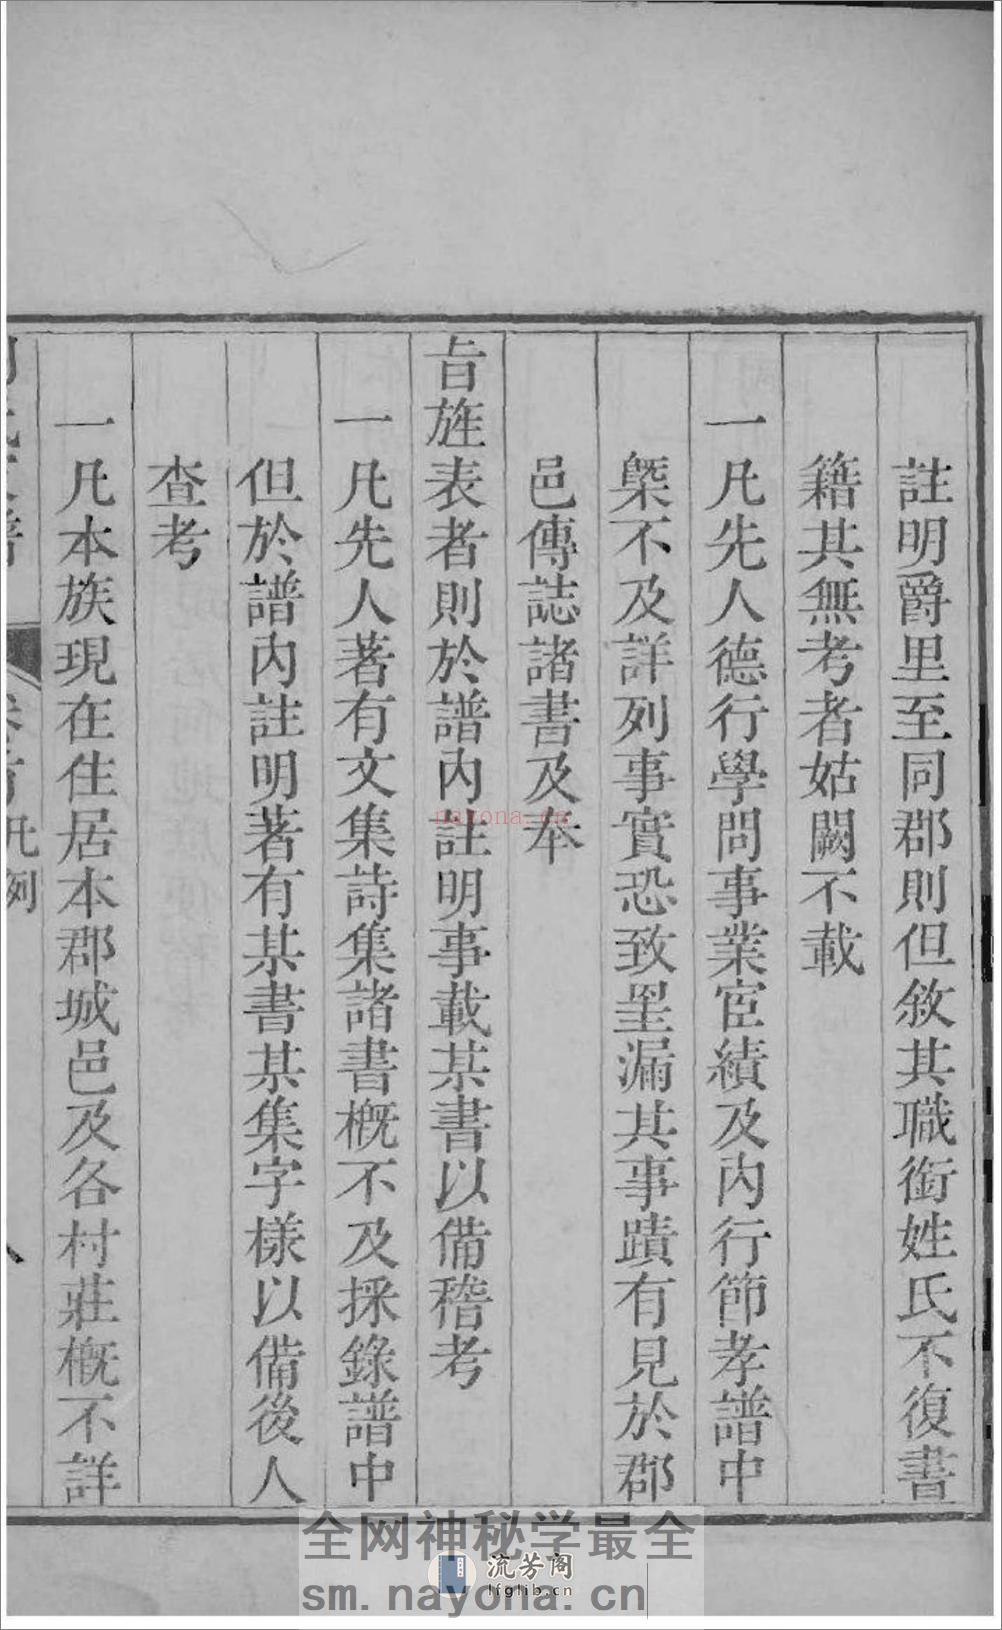 註明爵里至同郡則但敘其職銜姓氏不復書
籍其無考者姑闕不載
一凡先人德行學問事業宦績及內行節孝譜中
槩不及詳列事實恐致罣漏其事蹟有見於郡
邑傳誌諸書及奉
旨旌表者則於譜內註明事載某書以備稽考
一凡先人著有文集詩集諸書概不及採錄譜中
但於譜內註明著有某書某集字樣以備後人
查考
一凡本族現在住居本郡城邑及各村莊概不詳
卷首凡例
nayona.cn
全网神秘学最全
流芳阁
lfglib.cn
sm.nayona.cn